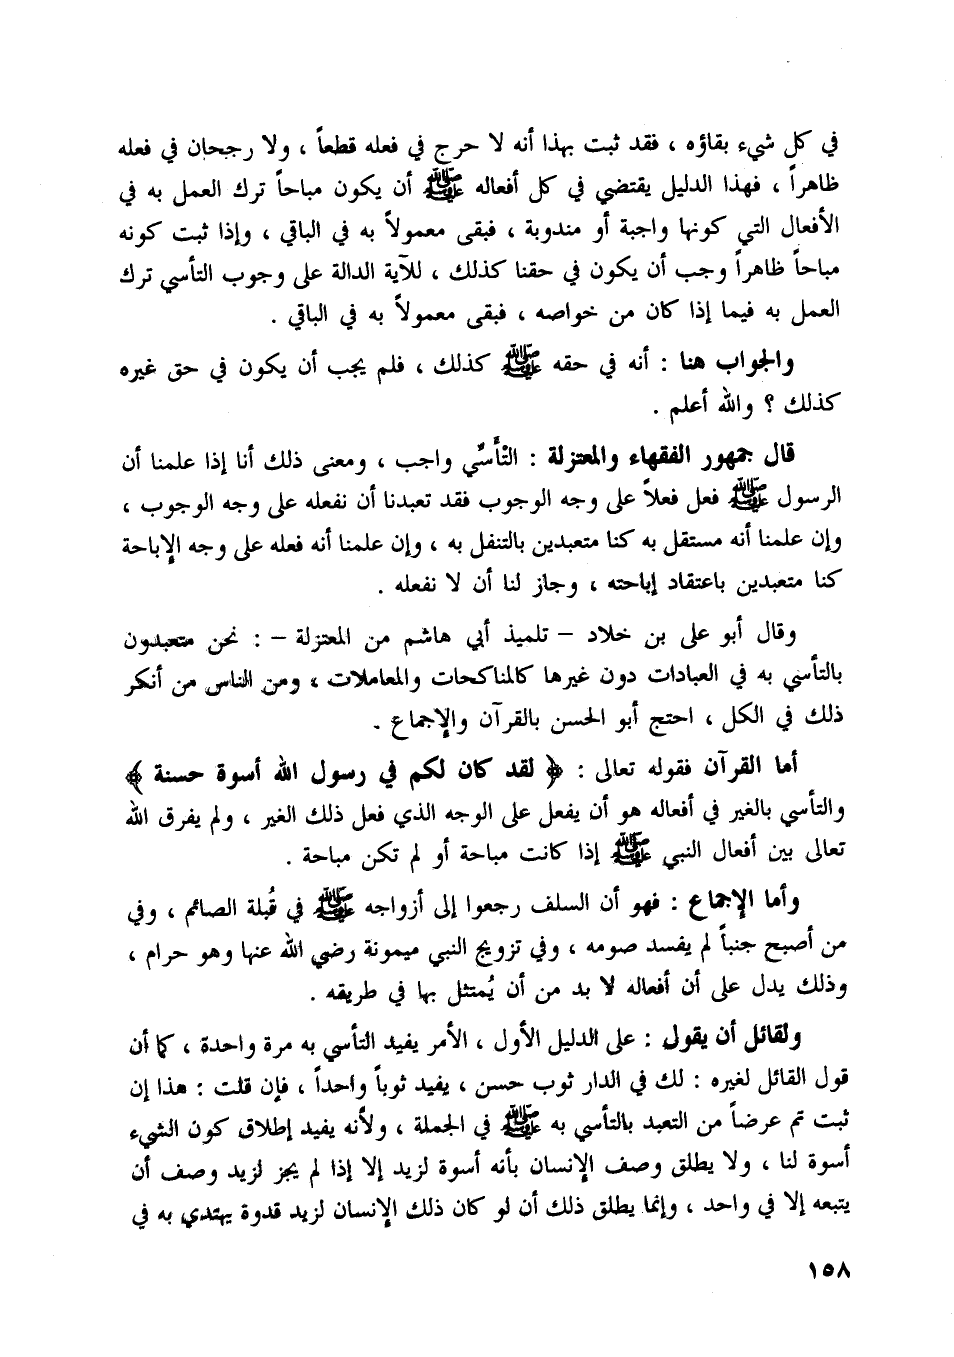 في كل شيء بقاؤه ، فقد ثبت بهذا أنه لا حرج في فعله قطعاً ، ولا رجحان في فعله
ظاهراً ، فهذا الدليل يقتضي في كل أفعاله ﷺ أن يكون مباحاً ترك العمل به في
الأفعال التي كونها واجبة أو مندوبة ، فبقى معمولاً به في الباقي ، وإذا ثبت كونه
مباحاً ظاهراً وجب أن يكون في حقنا كذلك ، للآية الدالة على وجوب التأسي ترك
العمل به فيما إذا كان من خواصه ، فبقى معمولاً به في الباقي .
والجواب هنا : أنه في حقه ﷺ كذلك ، فلم يجب أن يكون في حق غيره
كذلك ؟ والله أعلم .
قال جمهور الفقهاء والمعتزلة : التَّأَسِّي واجب ، ومعنى ذلك أنا إذا علمنا أن
الرسول ﷺ فعل فعلاً على وجه الوجوب فقد تعبدنا أن نفعله على وجه الوجوب ،
وإن علمنا أنه مستقل به كنا متعبدين بالتنفل به ، وإن علمنا أنه فعله على وجه الإباحة
كنا متعبدين باعتقاد إباحته ، وجاز لنا أن لا نفعله .
وقال أبو على بن خلاد – تلميذ أبي هاشم من المعتزلة – : نحن متعبدون
بالتأسي به في العبادات دون غيرها كالمناكحات والمعاملات ، ومن الناس من أنكر
ذلك في الكل ، احتج أبو الحسن بالقرآن والإجماع .
أما القرآن فقوله تعالى : ﴿ لقد كان لكم في رسول الله أسوة حسنة ﴾
والتأسي بالغير في أفعاله هو أن يفعل على الوجه الذي فعل ذلك الغير ، ولم يفرق الله
تعالى بين أفعال النبي ﷺ إذا كانت مباحة أو لم تكن مباحة .
وأما الإجماع : فهو أن السلف رجعوا إلى أزواجه ﷺ في قُبلة الصائم ، وفي
من أصبح جنباً لم يفسد صومه ، وفي تزويج النبي ميمونة رضي الله عنها وهو حرام ،
وذلك يدل على أن أفعاله لا بد من أن يُمتثل بها في طريقه .
ولقائل أن يقول : على الدليل الأول ، الأمر يفيد التأسي به مرة واحدة ، كما أن
قول القائل لغيره : لك في الدار ثوب حسن ، يفيد ثوباً واحداً ، فإن قلت : هذا إن
ثبت تم عرضاً من التعبد بالتأسي به ﷺ في الجملة ، ولأنه يفيد إطلاق كون الشيء
أسوة لنا ، ولا يطلق وصف الإنسان بأنه أسوة لزيد إلا إذا لم يجز لزيد وصف أن
يتبعه إلا في واحد ، وإنما يطلق ذلك أن لو كان ذلك الإنسان لزيد قدوة يهتدي به في
١٥٨